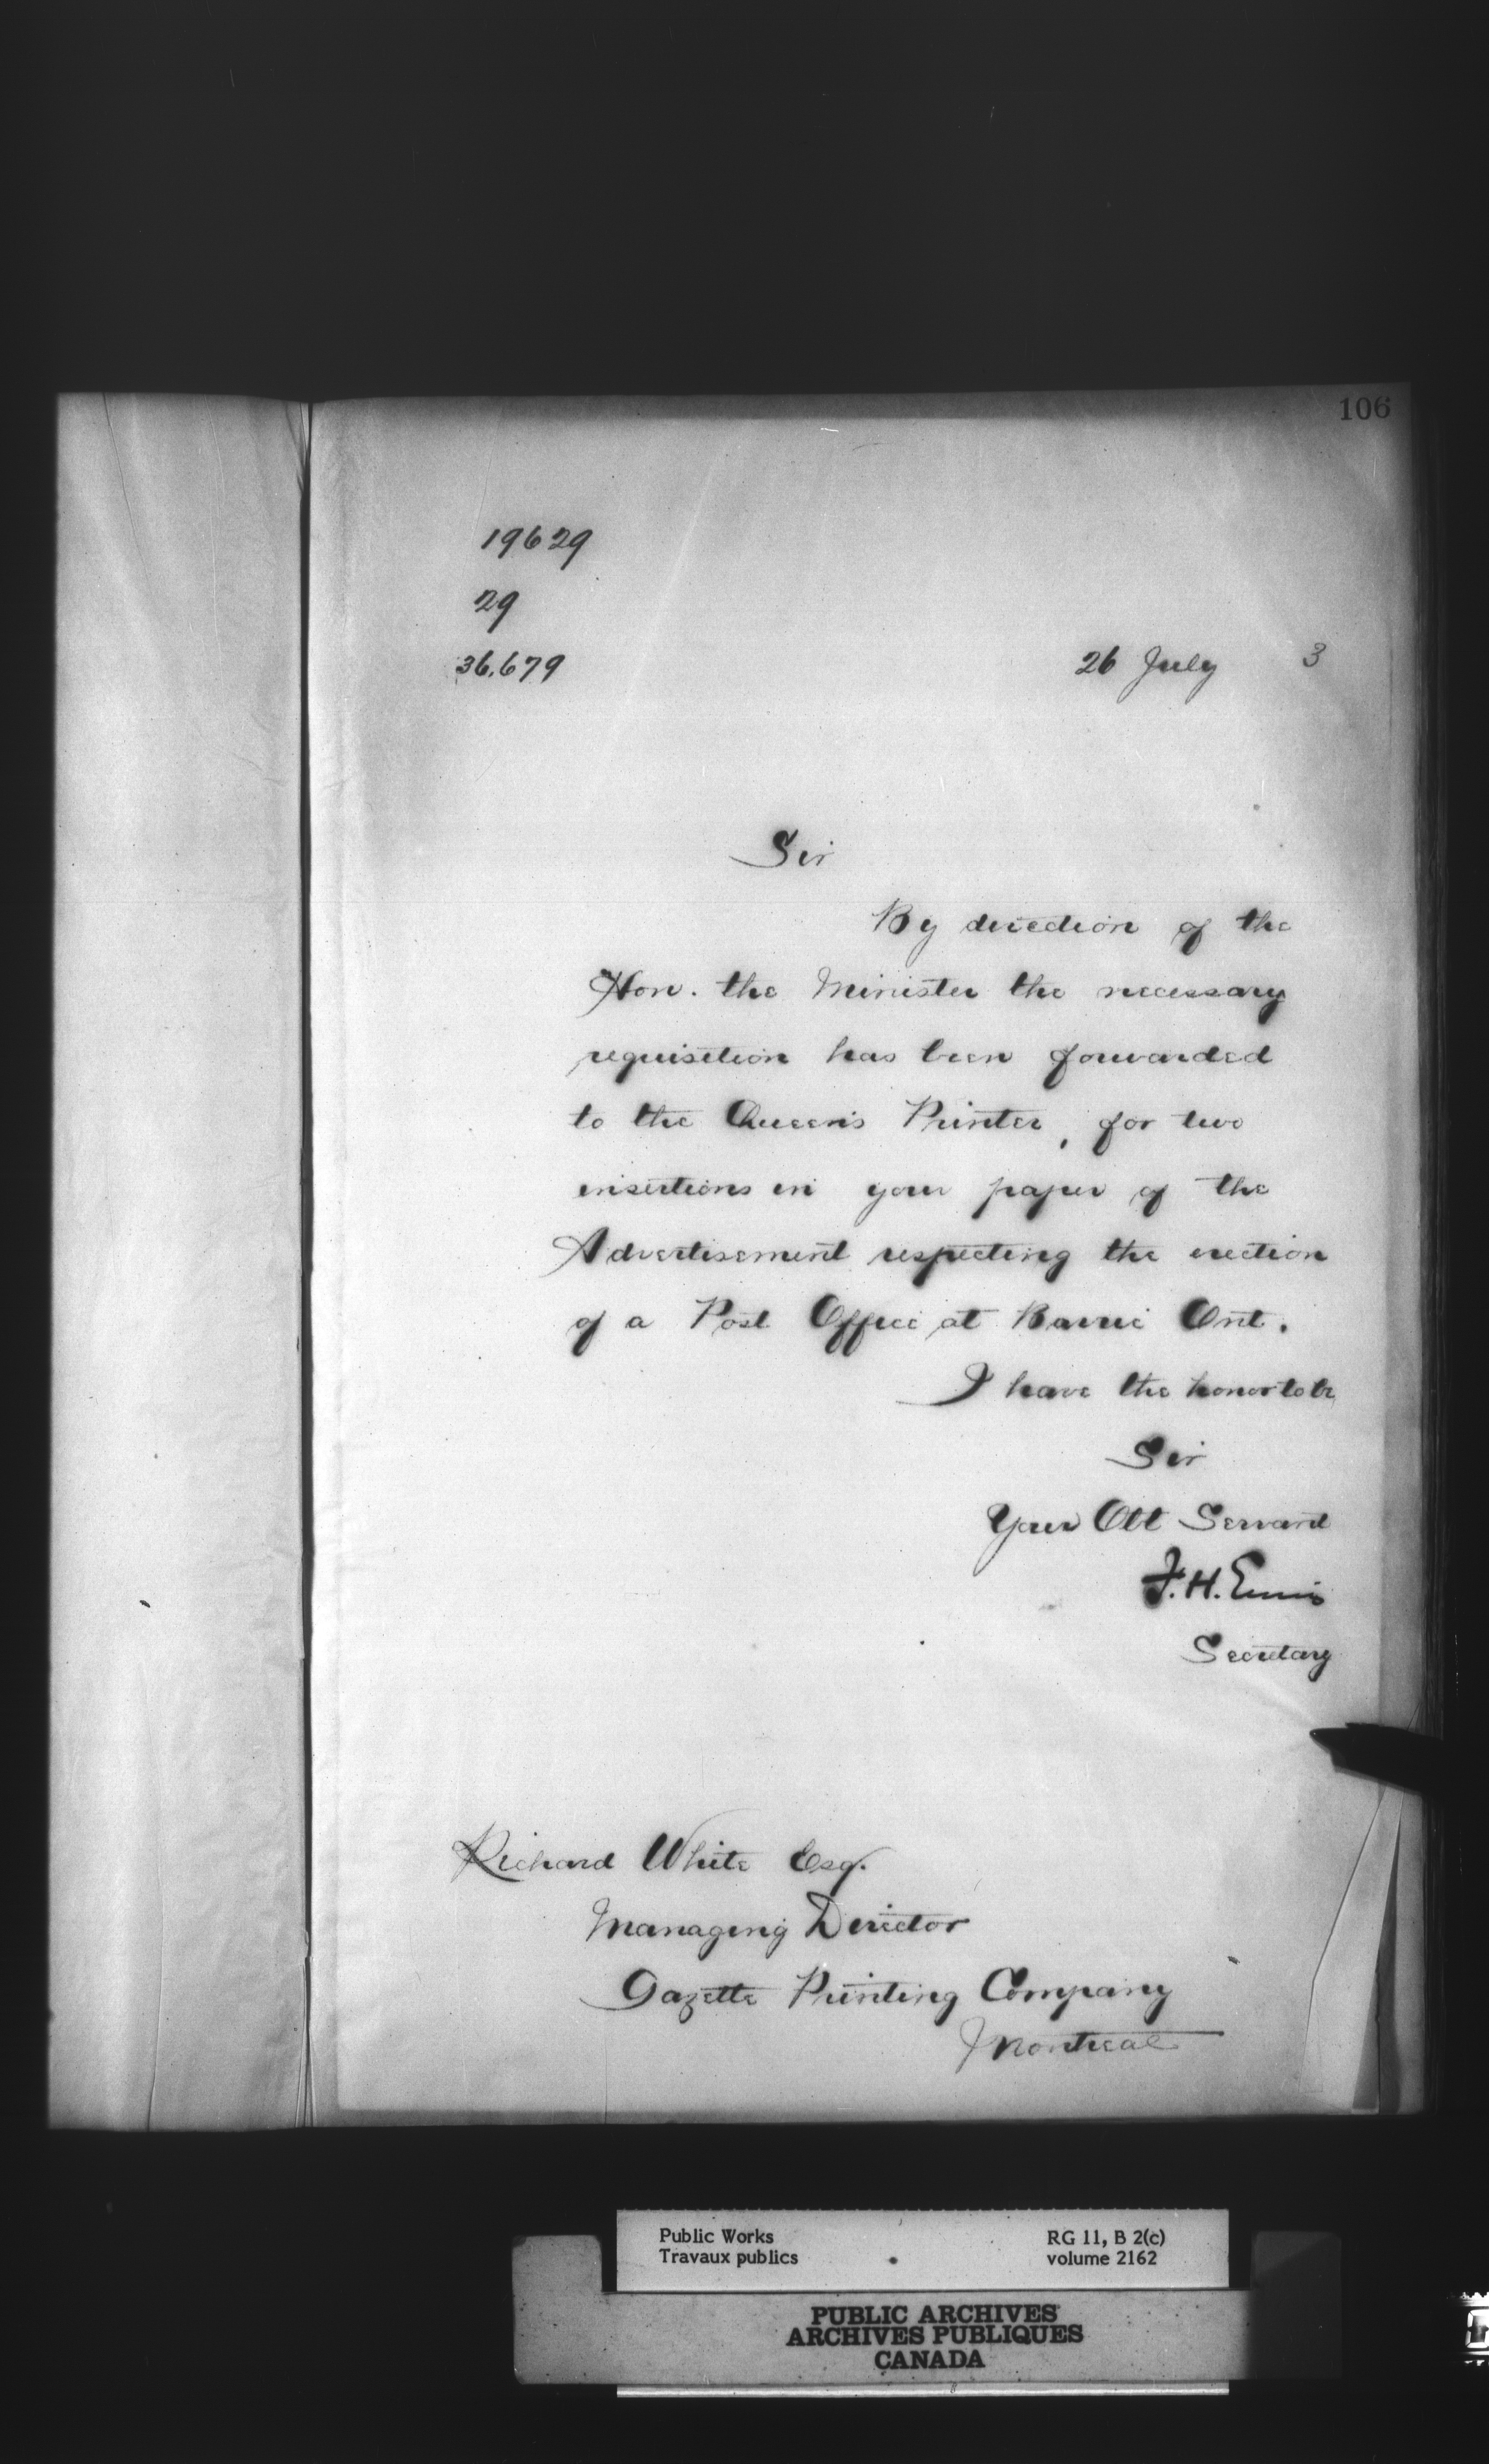 106
19629
29
36.679
26 July 3
Sir
By direction of the
Hon. the Minister the necessary
requisition has been forwarded
to the Queen's Printer, for two
insertions in your paper of the
Advertisement respecting the erection
of a Post Office at Barrie Ont.
I have the honor to be
Sir
Your Obt Servant
F. H. Ennis
Secretary
Richard White Esq.
Managing Director
Gazette Printing Company
Montreal
Public Works RG 11, B 2(c)
Travaux publics volume 2162
PUBLIC ARCHIVES
ARCHIVES PUBLIQUES
CANADA